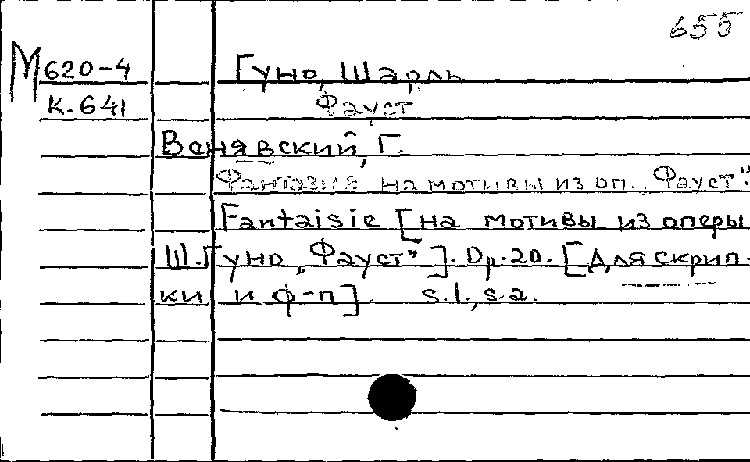 655
М 620-4 Гуно, Шарль
К-641 Фауст
Венявский, Г.
Фантазия на мотивы из оп. „Фауст".
Fantaisie [на мотивы из оперы
Ш. Гуно „Фауст"]. Op. 20. [Для скрип-
ки и ф-п] s.l., s.a.